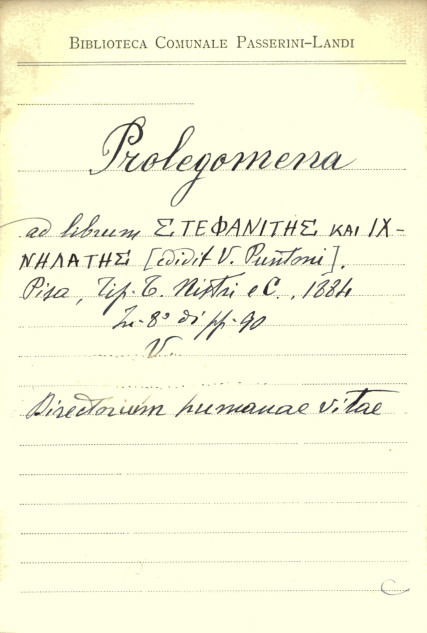 BIBLIOTECA COMUNALE PASSERINI-LANDI
Prolegomena
ad librum ΣΤΕΦΑΝΙΤΗΣ ΚΑΙ ΙΧ-
ΝΗΛΑΤΗΣ [edidit V. Puntoni].
Pisa, Tip. T. Nistri e C., 1884
In-8° di pp. 90
V.
Directorium humanae vitae
C